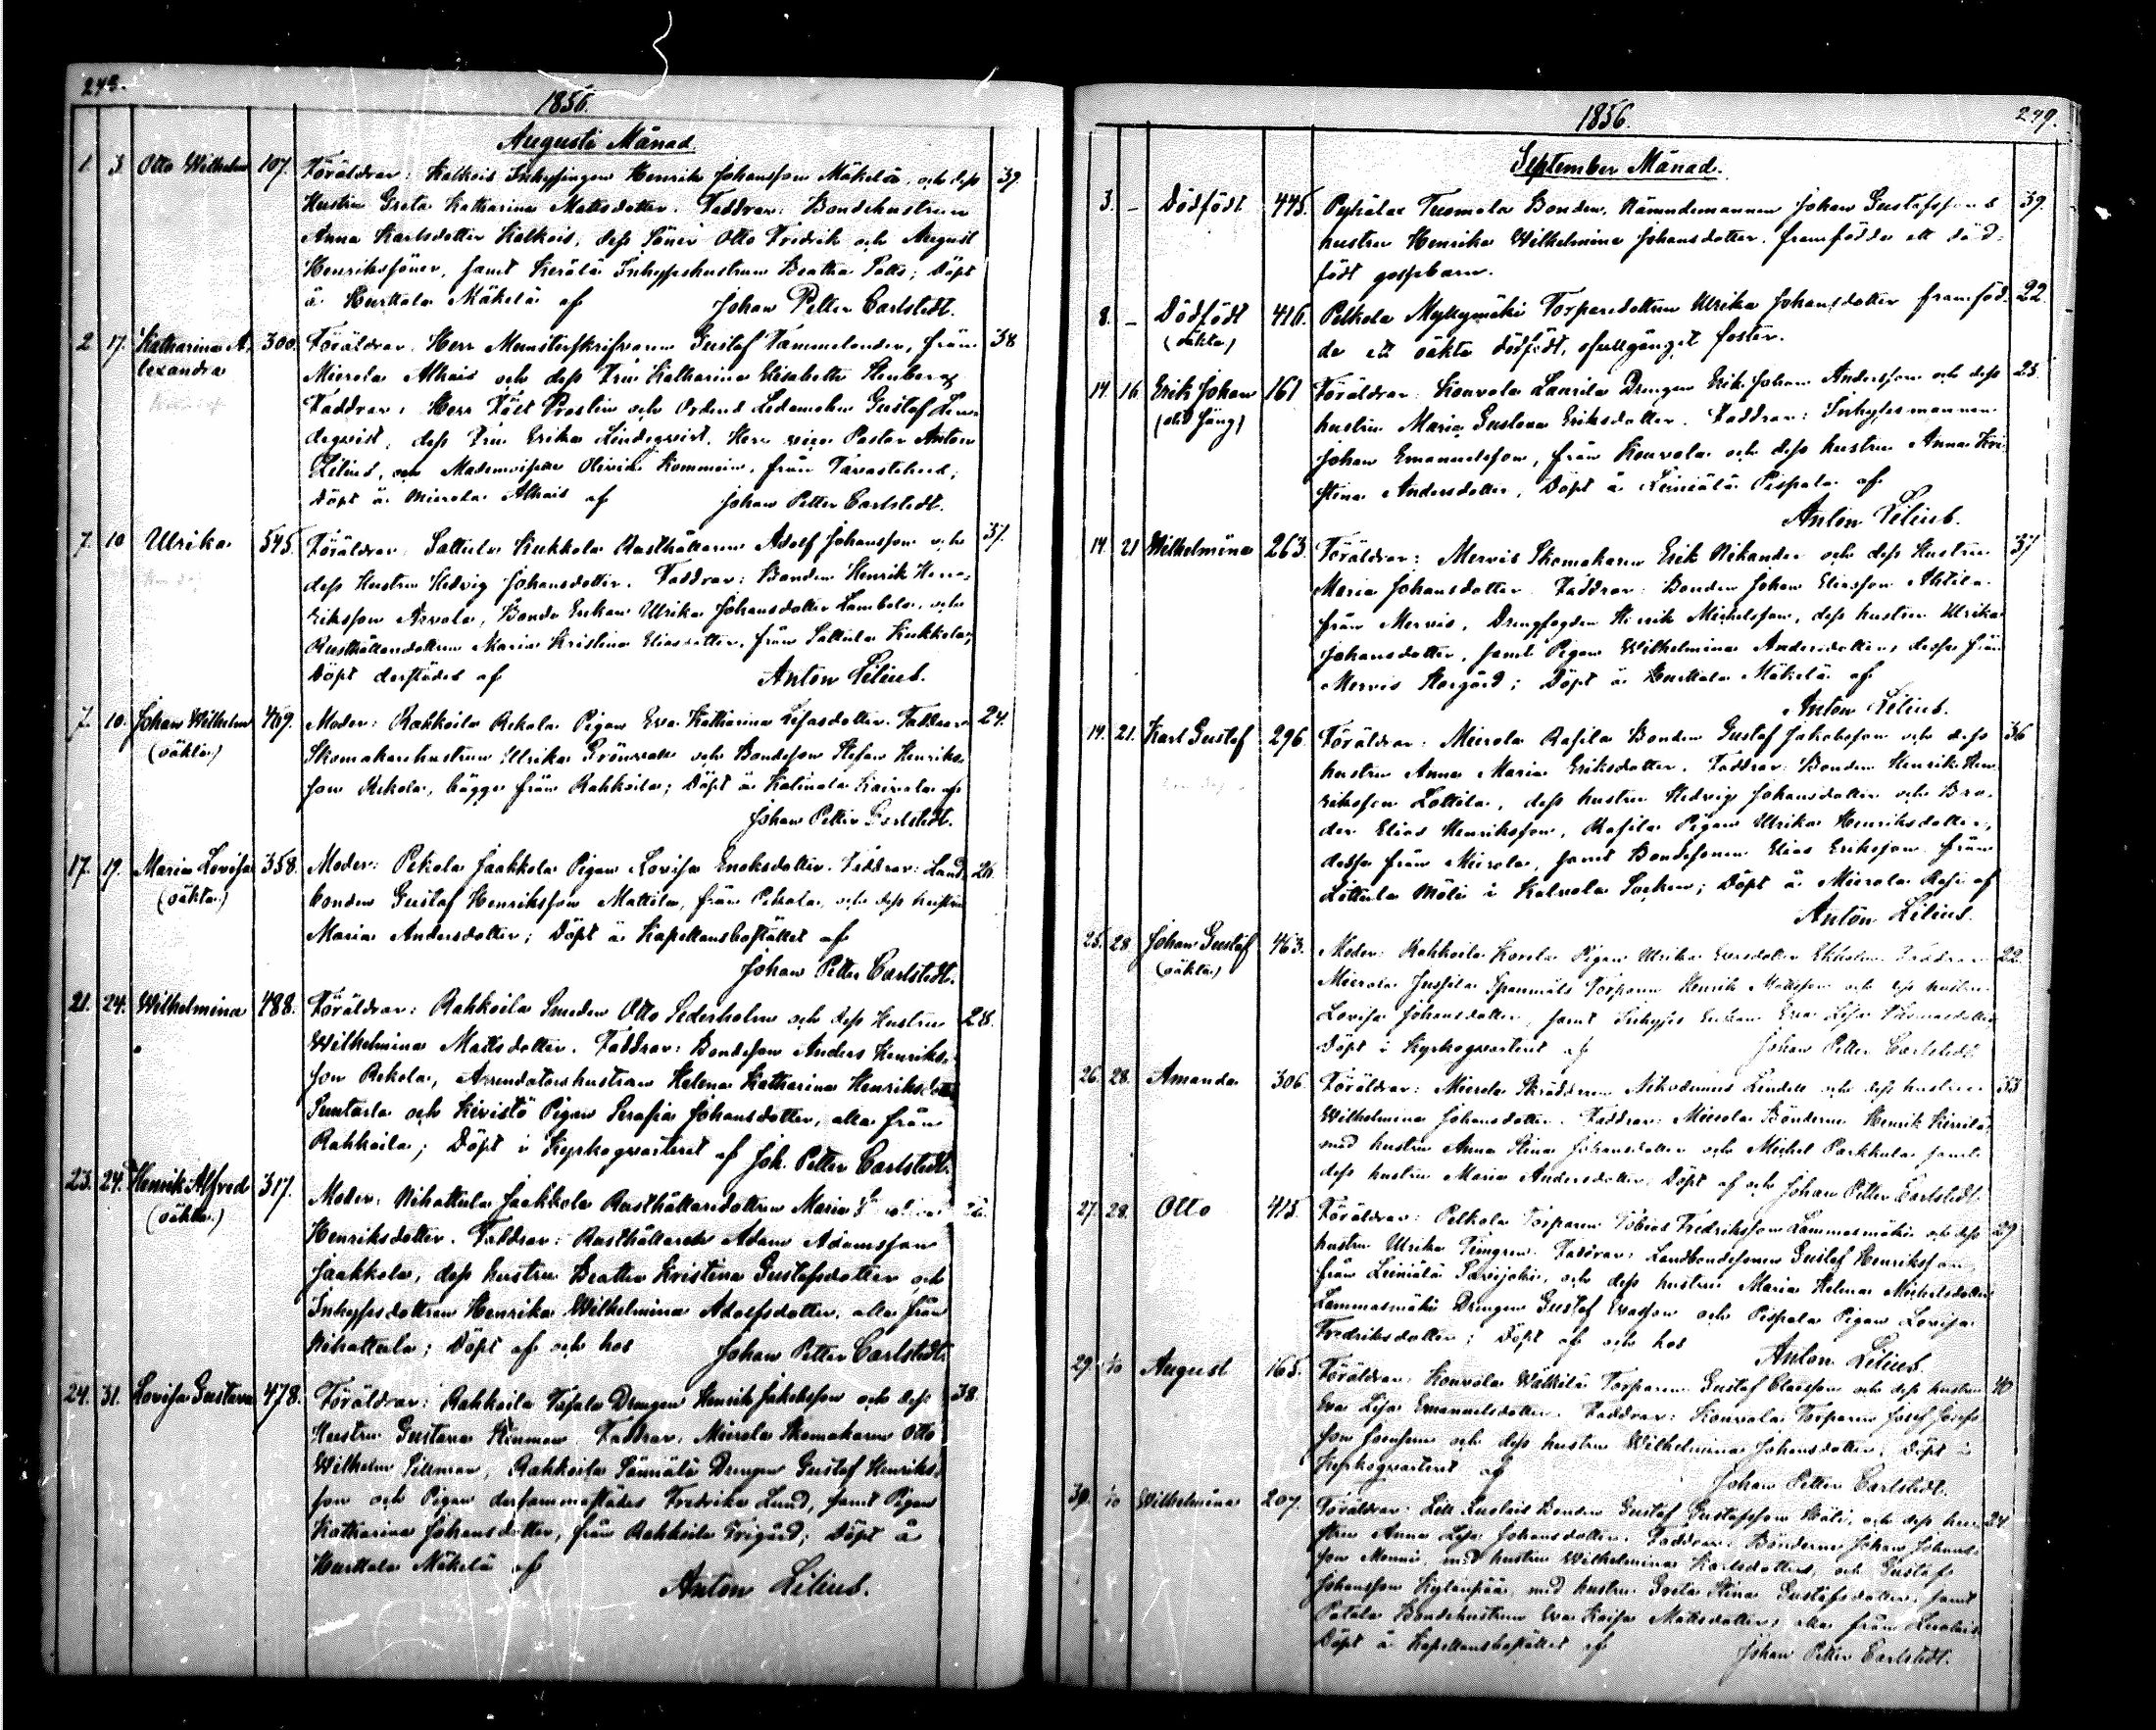 248.
1856.
Augusti Månad.
1. 3. Otto Wilhelm 107. Föräldrar: Kalkois Inhysingen Henrik Johansson Mäkelä, och dess 39.
Hustru Greta Katharina Mattsdotter. Faddrar: Bondehustrun
Anna Karlsdotter Kalkois, dess Söner Otto Fredrik och August
Henrikssöner, samt Kerälä Inhysehustrun Beatha; Döpt
å Hurttala Mäkelä af Johan Petter Carlstedt.
2. 17. Katharina A- 300. Föräldrar: Herr Mönsterskrifvaren Gustaf Tammelander, från 38
lexandra Mierola Alhais och dess Fru Katharina Elisabeth Stenberg
Faddrar: Herr Fält Prosten och Ordens Ledamoten Gustaf Lin-
deqvist, dess Fru Erika Lindeqvist, Herr vice Pastor Anton
Lilius, och Mademoiselle Olivia, från Tavastehus;
Döpt å Mierola Alhais af Johan Petter Carlstedt.
7. 10 Ulrika 545. Föräldrar: Sattula Kukkola Rusthållaren Adolf Johansson och 37.
dess Hustru Hedvig Johansdotter. Faddrar: Bonden Henrik Hen-
riksson Arvola, Bonde Enkan Ulrika Johansdotter Lambola, och
Rusthållaredottren Maria Kristina Eliasdotter, från Sattula Kukkola;
Döpt derstädes af Anton Lilius.
7. 10. Johan Wilhelm 469. Moder: Rahkoila Rekola Pigan Eva Katharina Lisasdotter. Faddrar 24.
(oäkta) Skomakarehustrun Ulrika Grönvall och Bondeson Stefan Henriks-
son Rekola, bägge från Rahkoila; Döpt å Katinala Kaivola af
Johan Petter Carlstedt.
17. 19. Maria Lovisa 358. Moder: Pekola Jaakkola Pigan Lovisa Enoksdotter. Faddrar: Land- 26.
(oäkta) bonden Gustaf Henriksson Mattila, från Pekola, och dess hustru
Maria Andersdotter; Döpt å Kapellansbostället af
Johan Petter Carlstedt.
21. 24. Wilhelmina 488. Föräldrar: Rahkoila Smeden Otto Sederholm och dess Hustru 28.
Wilhelmina Mattsdotter. Faddrar: Bondeson Anders Henriks-
son Rekola, Arrendatorshustrun Helena Katharina Henriksdotter
Suntarla och Kivistö Pigan Serafia Johansdotter, alla från
Rahkoila; Döpt i Kyrkoqvarteret af Joh. Petter Carlstedt.
23. 24. Henrik Alfred 317. Moder: Nihattula Jaakkola Rusthållaredottren Maria
(oäkta) Henriksdotter. Faddrar: Rusthållaren Adam Adamsson
Jaakkola, dess hustru Beatha Kristina Gustafsdotter och
Inhysesdottren Henrika Wilhelmina Adolfsdotter, alla från
Nihattula; Döpt af och hos Johan Petter Carlstedt.
24. 31. Lovisa Gustava 478. Föräldrar: Rahkoila Drengen Henrik Jakobsson och dess 38.
Hustru Gustava. Faddrar: Mierola Skomakaren Otto
Wilhelm Sillman, Rahkoila Drengen Gustaf Henriks-
son och Pigan dersammastädes Fredrika Lund, samt Pigan
Katharina Johansdotter, från Rahkoila Frigård; Döpt å
Hurttala Mäkelä af
Anton Lilius.
249.
1856.
September Månad.
3. – Dödfödt 445. Tuomola Bonden, Nämndemannen Johan Gustafssons 39.
hustru Henrika Wilhelmina Johansdotter, framfödde ett död-
födt gossebarn.
8. – Dödfödt 416. Pelkola Myllymäki Torparedottren Ulrika Johansdotter framföd- 22.
(oäkta) de ett oäkta dödfödt, ofullgånget foster.
14. 16. Erik Johan 161 Föräldrar: Konvola Laurila Drengen Erik Johan Andersson och dess 25.
hustru Maria Gustava Eriksdotter. Faddrar: Inhysesmannen
Johan Emanuelsson, från Konvola och dess hustru Anna Kri-
stina Andersdotter, Döpt å Leiniälä Pispala af
Anton Lilius.
14. 21 Wilhelmina 263. Föräldrar: Mervis Skomakaren Erik Nikander och dess Hustru 37
Maria Johansdotter. Faddrar: Bonden Johan Eliasson Ahtila
från Mervis, Drengfogden Henrik Michelsson, dess hustru Ulrika
Johansdotter, samt Pigan Wilhelmina Andersdotter, dessa från
Mervis Storgård; Döpt å Hurttala Mäkelä af
Anton Lilius.
19. 21. Karl Gustaf 296. Föräldrar: Mierola Rasila Bonden Gustaf Jakobsson och dess 36
hustru Anna Maria Eriksdotter. Faddrar: Bonden Henrik Hen-
riksson Lottila, dess hustru Hedvig Johansdotter och Bro-
der Elias Henriksson, Rasila Pigan Ulrika Henriksdotter,
dessa från Mierola, samt Bondesonen Elias Eriksson från
i Kalvola Socken; Döpt å Mierola Rasi af
Anton Lilius.
25. 28. Johan Gustaf 463. Moder: Rahkoila Pigan Ulrika Ekholm Faddrar 22.
(oäkta) Mierola Jussila Torparen Henrik Mattsson och dess hustru
Lovisa Johansdotter, samt Inhyses Enkan Eva Lisa Thomasdotter
Döpt i Kyrkoqvarteret af Johan Petter Carlstedt.
26. 28. Amanda 306. Föräldrar: Mierola Skräddaren Nikodemus Lindell och dess hustru 33
Wilhelmina Johansdotter. Faddrar: Mierola Bönderne Henrik
med hustru Anna Stina Johansdotter och Michel Parkkula samt
dess hustru Maria Andersdotter. Döpt af och Johan Petter Carlstedt.
27. 28. Otto 415. Föräldrar: Pelkola Torparen Tobias Fredriksson Lammasmäki och dess 29
hustru Ulrika Timgren. Faddrar: Landbondesonen Gustaf Henriksson,
från Leiniälä, och dess hustru Maria Helena Michelsdotter
Lammasmäki Drengen Gustaf och Pispala Pigan Lovisa
Fredriksdotter; Döpt af och hos Anton Lilius.
29. 1/10 August 165. Föräldrar: Konvola Wälkilä Torparen Gustaf Claesson och dess hustru 40
Eva Lisa Emanuelsdotter. Faddrar: Konvola Torparen Josef Josefs-
son och dess hustru Wilhelmina Johansdotter; Döpt i
Kyrkoqvarteret af Johan Petter Carlstedt.
30. 1/10 Wilhelmina 207. Föräldrar: Lill Luolais Bonden Gustaf Gustafsson, och dess hu- 24
stru Anna Lisa Johansdotter. Faddrar: Bönderne Johan Johans-
son, med hustru Wilhelmina Karlsdotter, och Gustaf
Johansson Kylänpää med hustru Greta Stina Gustafsdotter, samt
Patala Bondehustrun Eva Kaisa Mattsdotter, alla från Luolais
Döpt å Kapellansbostället af Johan Petter Carlstedt.